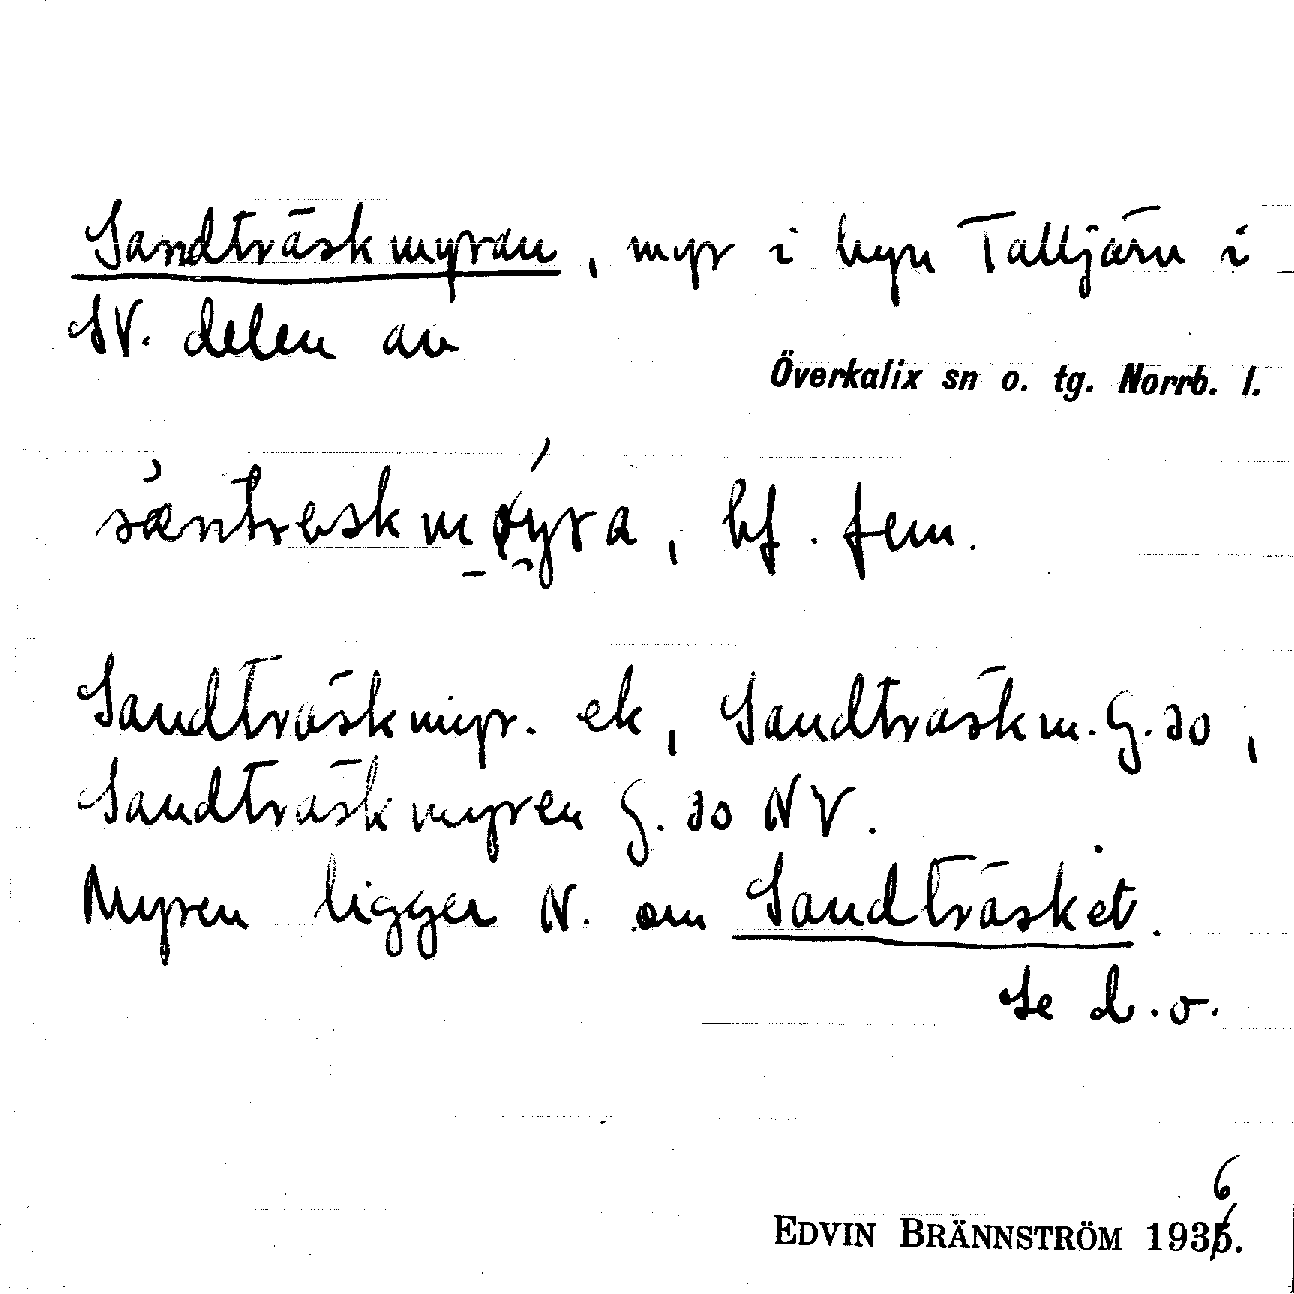 Sandträskmyran, myr i byn Talljärn i
SV. delen av
Överkalix sn o. tg. Norrb. l.
sæntreskmøyra, bf. fem.
Sandträskmyr. ek, Sandträskm. G. 30,
Sandträskmyren G. 30 NV.
Myren ligger N. om Sandträsket.
Se d. o.
6
EDVIN BRÄNNSTRÖM 1935.